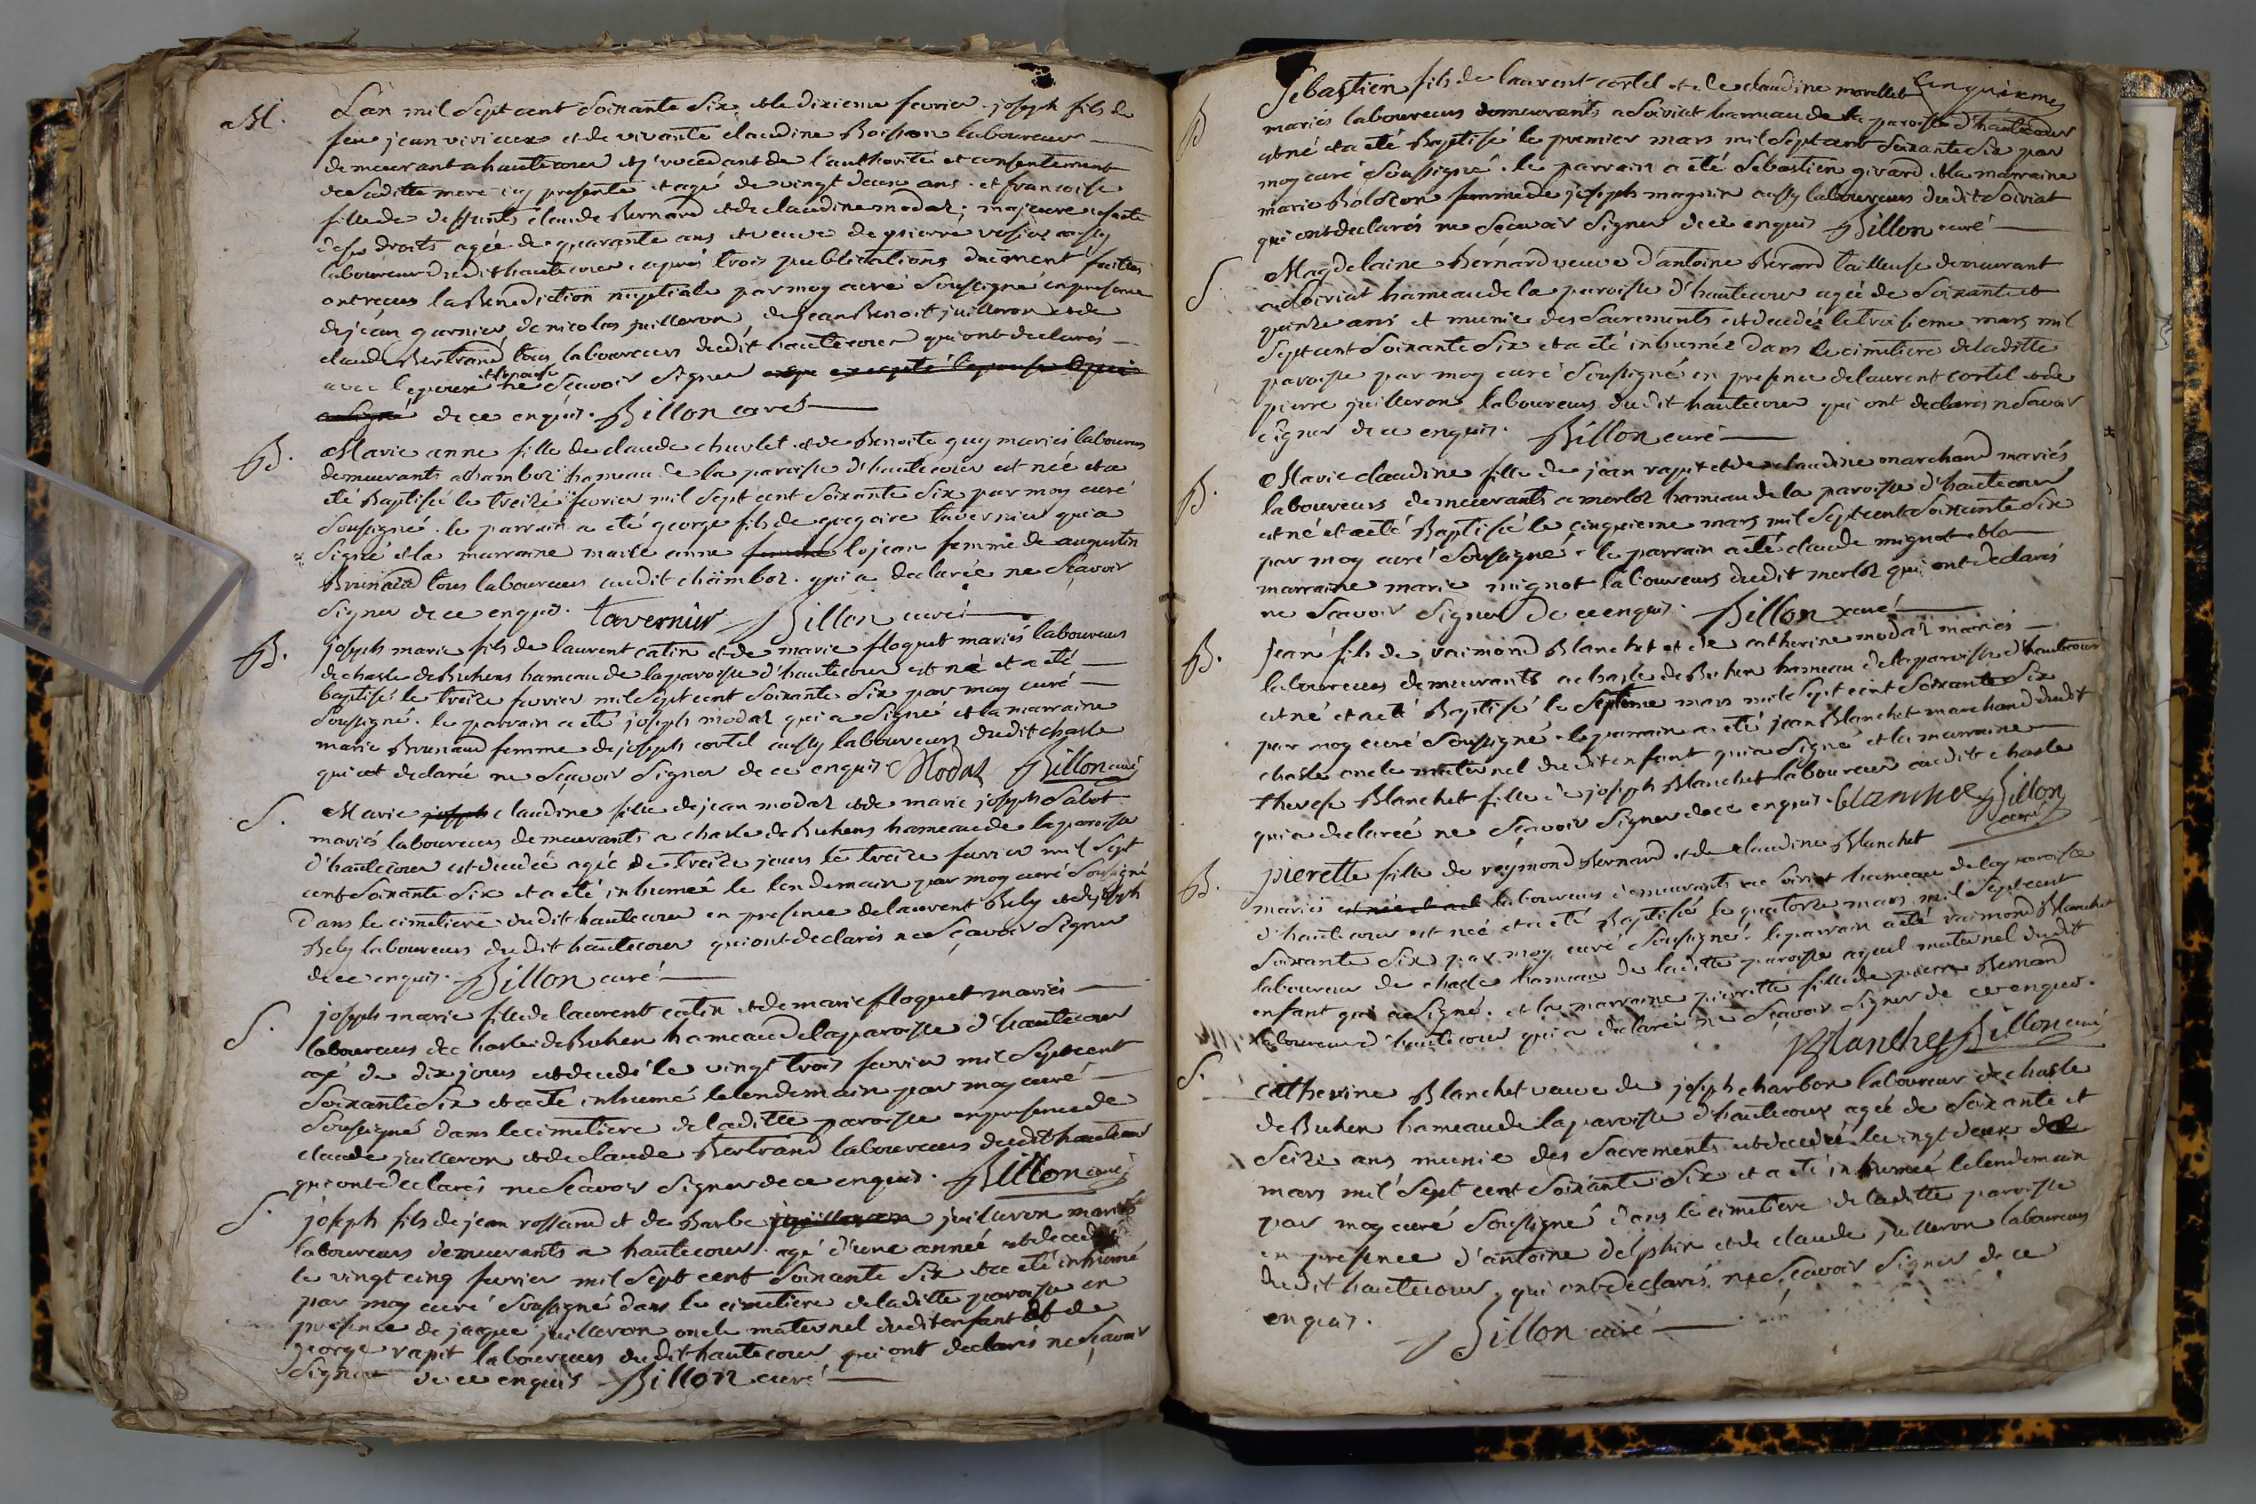 M. L'an mil sept cent soixante six et le dixieme fevrier joseph fils de
feu jean vivieux et de vivante claudine Boisson laboureur
demeurant a hautecour et procedant de l'authorité et consentement
de saditte mere icy presente et agé de vingt deux ans et francoise
fille de deffunts claude Bernard et de claudine modas, majeure usante
de ses droits agée de quarante ans et veuve de pierre aussy
laboureur dudit hautecour, apres trois publications duëment faites
ont reçus la Benediction nuptiale par moy curé soussigné en presence
de jean garnier, de nicolas juilleron de jean Benoit juilleron et de
claude Bertrand tous laboureurs dudit hautecour qui ont declarés
avec lepoux et lepouse ne sçavoir signer excepté lepouse qui
a signé de ce enquis. Billon curé
B. Marie anne fille de claude churlet et de Benoite guy mariés laboureurs
demeurants a chambos hameau de la paroisse d'hautecour est née et a
eté Baptisé le treize fevrier mil sept cent soixante six par moy curé
soussigné. le parrain a eté george fils de gregoire tavernier qui a
signé et la marraine marie anne femme lojean femme de augustin
Brunaud tous laboureurs dudit chambos. qui a declarée ne sçavoir
signer de ce enquis. Tavernier Billon curé
B. joseph marie fils de laurent catin et de marie floquet mariés laboureurs
de chasle de Buhens hameau de la paroisse d'hautecour est né et a eté
baptisé le treize fevrier mil sept cent soixante six par moy curé
soussigné. le parrain a eté joseph modas qui a signé et la marraine
marie Brunaud femme de joseph cortel aussy laboureurs dudit chasle
qui est declarée ne sçavoir signer de ce enquis. Modas Billon curé
S. Marie joseph claudine fille de jean modas et de marie joseph Sabot
mariés laboureurs demeurants a chasle de Buhens hameau de la paroisse
d'hautecour est decedée agée de treize jours le treize fevrier mil sept
cent soixante six et a eté inhumée le lendemain par moy curé soussigné
Dans le cimetiere dudit hautecour en presence de laurent Bely et de joseph
Bely laboureurs dudit hautecour qui ont declarés ne sçavoir signer
de ce enquis. Billon curé
S. joseph marie fils de laurent catin et de marie floquet mariés
laboureurs de chasle de Buhen hameau de la paroisse d'hautecour
agé de dix jours est decedé le vingt trois fevrier mil sept cent
soixante six et a eté inhumé le lendemain par moy curé
soussigné dans le cimetiere de laditte paroisse en presence de
claude juilleron et de claude Bertrand laboureurs dudit hautecour
qui ont declarés ne sçavoir signer de ce enquis. Billon curé
S. joseph fils de jean rossand et de Barbe juilleron juileron mariés
laboureurs demeurants a hautecour. agé d'une année est decedé
le vingt cinq fevrier mil sept cent soixante six et a eté inhumé
par moy curé soussigné dans le cimetiere de laditte paroisse en
presence de jaque juilleron oncle maternel dudit enfant et de
george rapit laboureurs dudit hautecour qui ont declarés ne sçavoir
signer de ce enquis Billon curé
cinquiemes
B Sebastien fils de laurent cortel et de claudine morellet
mariés laboureurs demeurants a Soiriat hameau de la paroisse d'hautecour
est né et a eté Baptisé le premier mars mil sept cent soixante six par
moy curé soussigné. le parrain a eté sebastien girard et la marraine
marie Bolozon femme de joseph aussy laboureurs dudit soiriat
qui ont declarés ne sçavoir signer de ce enquis Billon curé
S. Magdelaine Bernard veuve d'antoine Berard tailleuse demeurant
a Soiriat hameau de la paroisse d'hautecour agée de soixante et
quinze ans et munie des sacrements est decedée le troisieme mars mil
sept cent soixante six et a eté inhumée dans le cimetiere de laditte
paroisse par moy curé soussigné en presence de laurent cortel et de
pierre juilleron laboureurs dudit hautecour qui ont declarés ne sçavoir
signer de ce enquis. Billon curé
B. Marie claudine fille de jean rapit et de claudine marchand mariés
laboureurs demeurants a merlos hameau de la paroisse d'hautecour
est né et a eté Baptisé le cinquieme mars mil sept cent soixante six
par moy curé soussigné. le parrain a eté claude mignot et la
marraine marie mignot laboureurs dudit merlos qui ont declarés
ne sçavoir signer de ce enquis. Billon curé
B. Jean fils de raimond Blanchet et de catherine modas mariés
laboureurs demeurants a chasle de Buhen hameau de la paroisse d'hautecour
est né et a eté Baptisé le septieme mars mil sept cent soixante six
par moy curé soussigné. le parrain a eté jean Blanchet marchand dudit
chasle oncle maternel dudit enfant qui a signé et la marraine
therese Blanchet fille de joseph Blanchet laboureur dudit chasle
qui a declarée ne sçavoir signer de ce enquis. Blanchet Billon
curé
B. pierette fille de reymond Bernard et de claudine Blanchet
mariés est née et a eté laboureurs demeurants a Soiriat hameau de la paroisse
d'hautecour est née et a eté Baptisée le quatorze mars mil sept cent
soixante six par moy curé soussigné. le parrain a eté raimond Blanchet
laboureur de chasle hameau de laditte paroisse ayeul maternel dudit
enfant qui a signé. et la marraine pierrette fille de pierre Bernard
laboureur d'hautecour qui a declarée ne sçavoir signer de ce enquis.
Blanchet Billon curé
S. catherine Blanchet veuve de joseph charbon laboureur de chasle
de Buhen hameau de la paroisse d'hautecour agée de soixante et
seize ans munie des sacrements est decedée le vingt deux de
mars mil sept cent soixante six et a eté inhumée le lendemain
par moy curé soussigné dans le cimetiere de laditte paroisse
en presence d'antoine delphin et de claude juilleron laboureurs
dudit hautecour, qui ont declarés ne sçavoir signer de ce
enquis. Billon curé